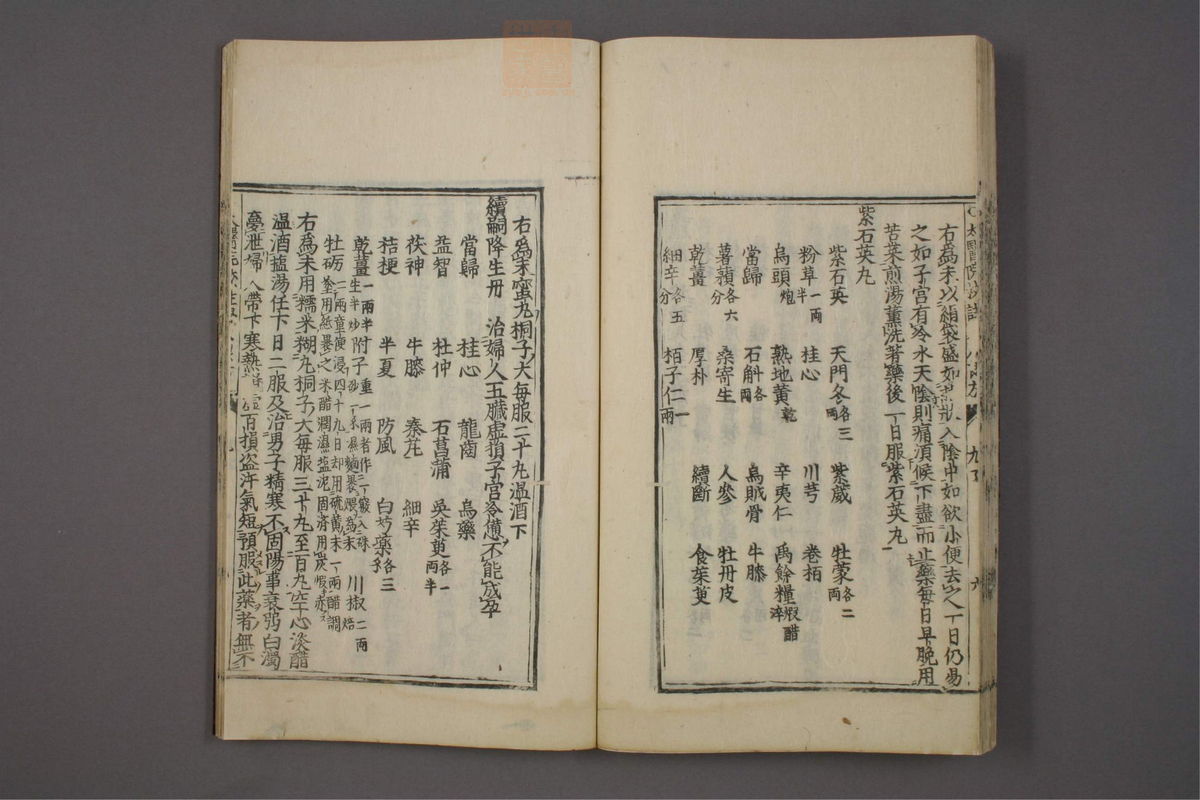 右爲末以絹袋盛如 入陰中如欲小便去之一日仍易
之如子宮有冷水天陰則痛須候下盡而止藥每日早晚用
苦菜煎湯薰洗著藥後一日服紫石英丸
紫石英丸
紫石英 天門冬各三兩 紫葳 牡蒙各二兩
粉草一兩半 桂心 川芎 卷栢
烏頭炮 熟地黃乾 辛夷仁 禹餘糧煆醋淬
當歸 石斛各兩 烏賊骨 牛膝
薯蕷各六分 桑寄生 人參 牡丹皮
乾薑 厚朴 續斷 食茱萸
細辛各五分 栢子仁一兩
右爲末蜜丸桐子大每服二十丸温酒下
續嗣降生丹 治婦人五臟虛損子宮冷憊不能成孕
當歸 桂心 龍齒 烏藥
益智 杜仲 石菖蒲 吳茱萸各一兩半
茯神 牛膝 秦艽 細辛
桔梗 半夏 防風 白芍藥各三
乾薑一兩半生半炒 附子重一兩者作一 川椒二兩焙
牡蠣二兩童便浸四十九日却用硫黃末一兩醋調塗用紙裹之米醋潤濕鹽泥固濟用炭煆赤
右爲末用糯米糊丸桐子大每服三十丸至百丸空心淡醋
温酒鹽湯任下日二服及治男子精寒不固陽事衰弱白濁
夢泄婦人帶下寒熱 虛百損盜汗氣短預服此藥者無不